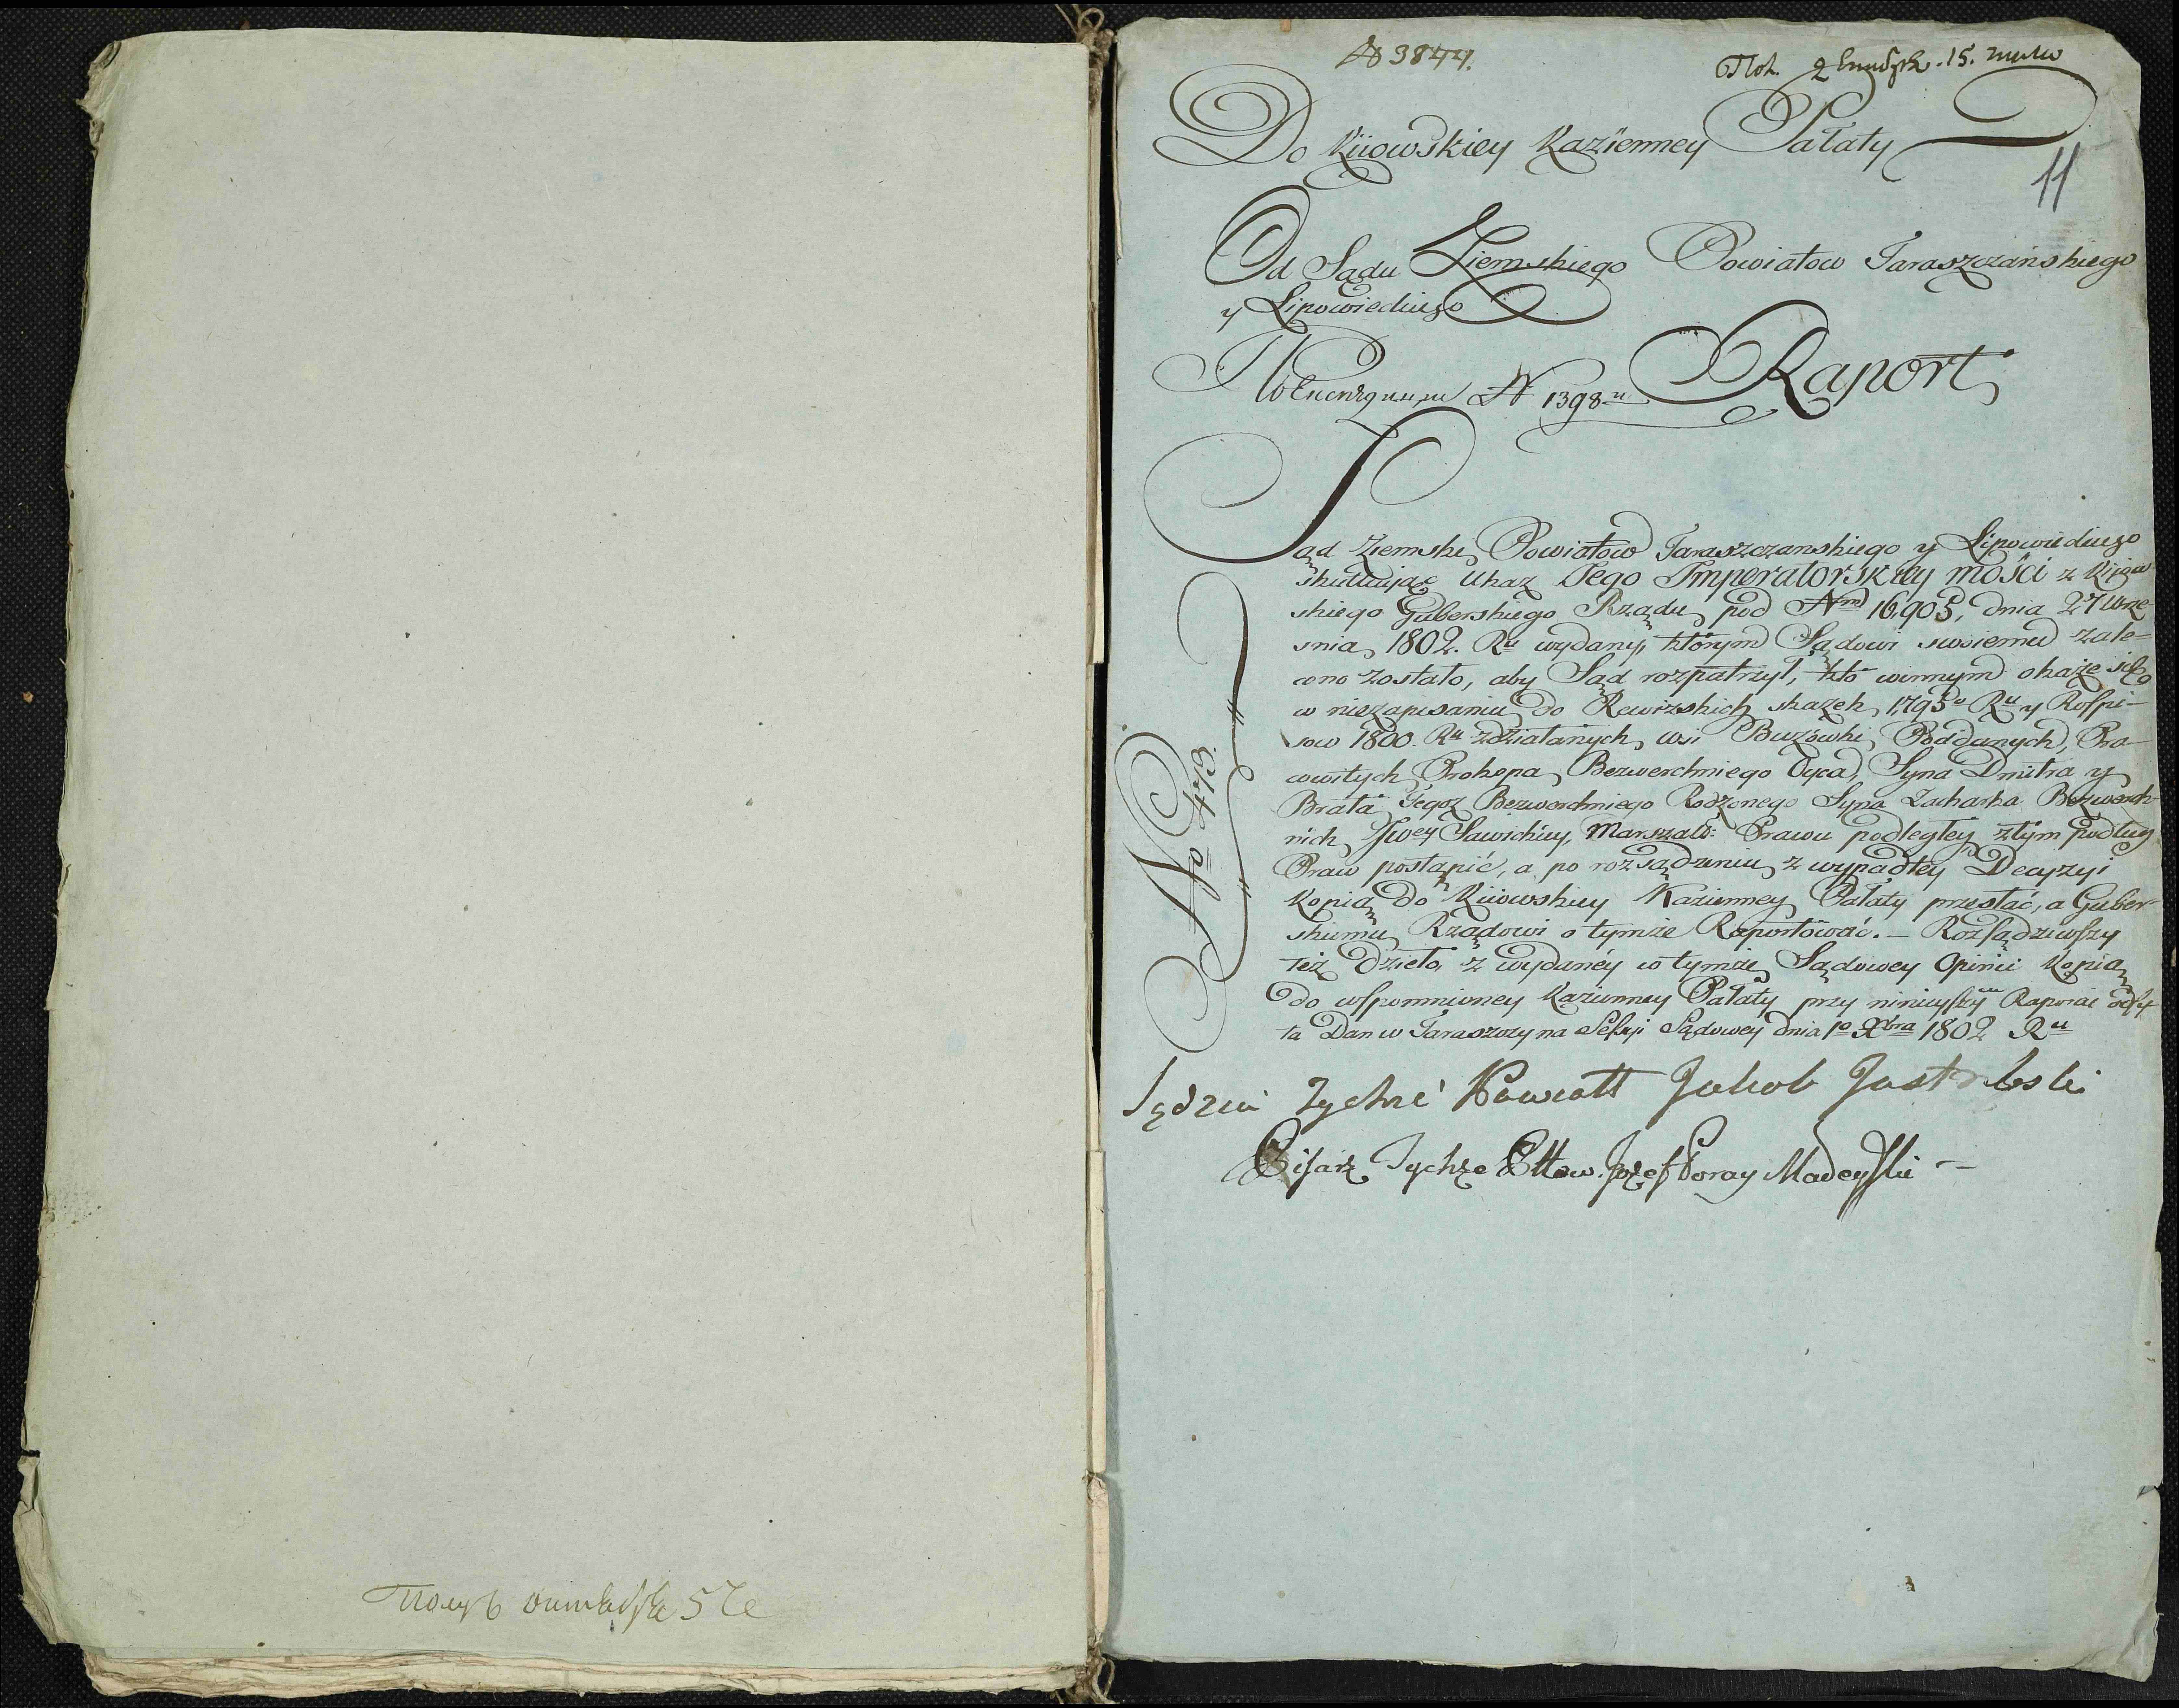 октября 5
№ 3844.
Пол. 2 декабря. 15. числа
Do Kiiowskiey Kazienney Pałaty
11
Od Sądu Ziemskiego Powiatow Taraszczańskiego
y Lipowieckiego
№ 1398 Raport
Sąd Ziemski Powiatow Taraszczanskiego y Lipowieckiego
skutkuiąc Ukaz Jego Imperatorskiey mości z Kiiow
skiego Guberskiego Rządu pod Nrm 16,905, dnia 27 Wrze-
snia 1802. Ru wydany, którym Sądowi swoiemu zale-
cono zostało, aby Sąd rozpatrzył, kto winnym okaże się
w niezapisaniu do Rewizskich skazek 1795o Ru y Rospi-
sow 1800. Ru zdziałanych, wsi Buzowki, Poddanych, Pra-
cowitych Prokopa Bezwerchniego Oyca, Syna Dmitra y
Brata Tegoż Bezwerchniego Rodzonego Syna Zacharka Bezwerch-
nich, Jwey Sawickiey, Marszałk: Prawu podległey z tym podług
Praw postąpić, a po rozsądzeniu z wypadłey Decyzyi
Kopią do Kiiowskiey Kazienney Pałaty przesłać, a Guber-
skiemu Rządowi o tymże Raportować. – Rozsądziwszy
też Dzieło, z wydaney w tymże Sądowey Opinii Kopią
do wspomnioney Kazienney Pałaty przy ninieyszym Raporcie odsy
ła Dan w Taraszczy na Sessyi Sądowey dnia 1o Xbra 1802 Ru
No 473.
Sędzia Tychże Powiatt Jakob Jastrzbski
Pisarz Tychże Pttow. Jozef Poray Madeyski